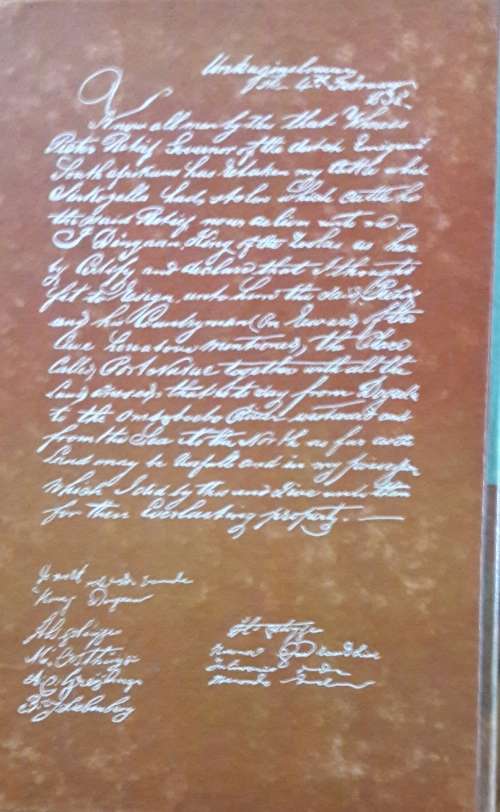 Unkuginsloave
the 4th February
1838
Know all men by this that Whereas
Pieter Retief Governor of the dutch Emigrant
South afrikans has Retaken my Cattle which
Sinkonyella had stolen which cattle he
the said Retief now deliver unto me
I Dingaan, King of the Zoolas as here
by Certify and declare that I thought
fit to Resign unto him the said Retief
and his Countrymen (on Reward of the
Case hereabove mentioned) the Place
Called Port Natal together with all the
land annexed, that is to say from Dogela
to the Omsoboebo River westward and
from the Sea to the North as far as the
land may be Usefull and in my possession
Which I did by this and Give unto them
for their Everlasting property.
King Dingaan
M. Oosthuyse
A C Greyling
B. J. Liebenberg